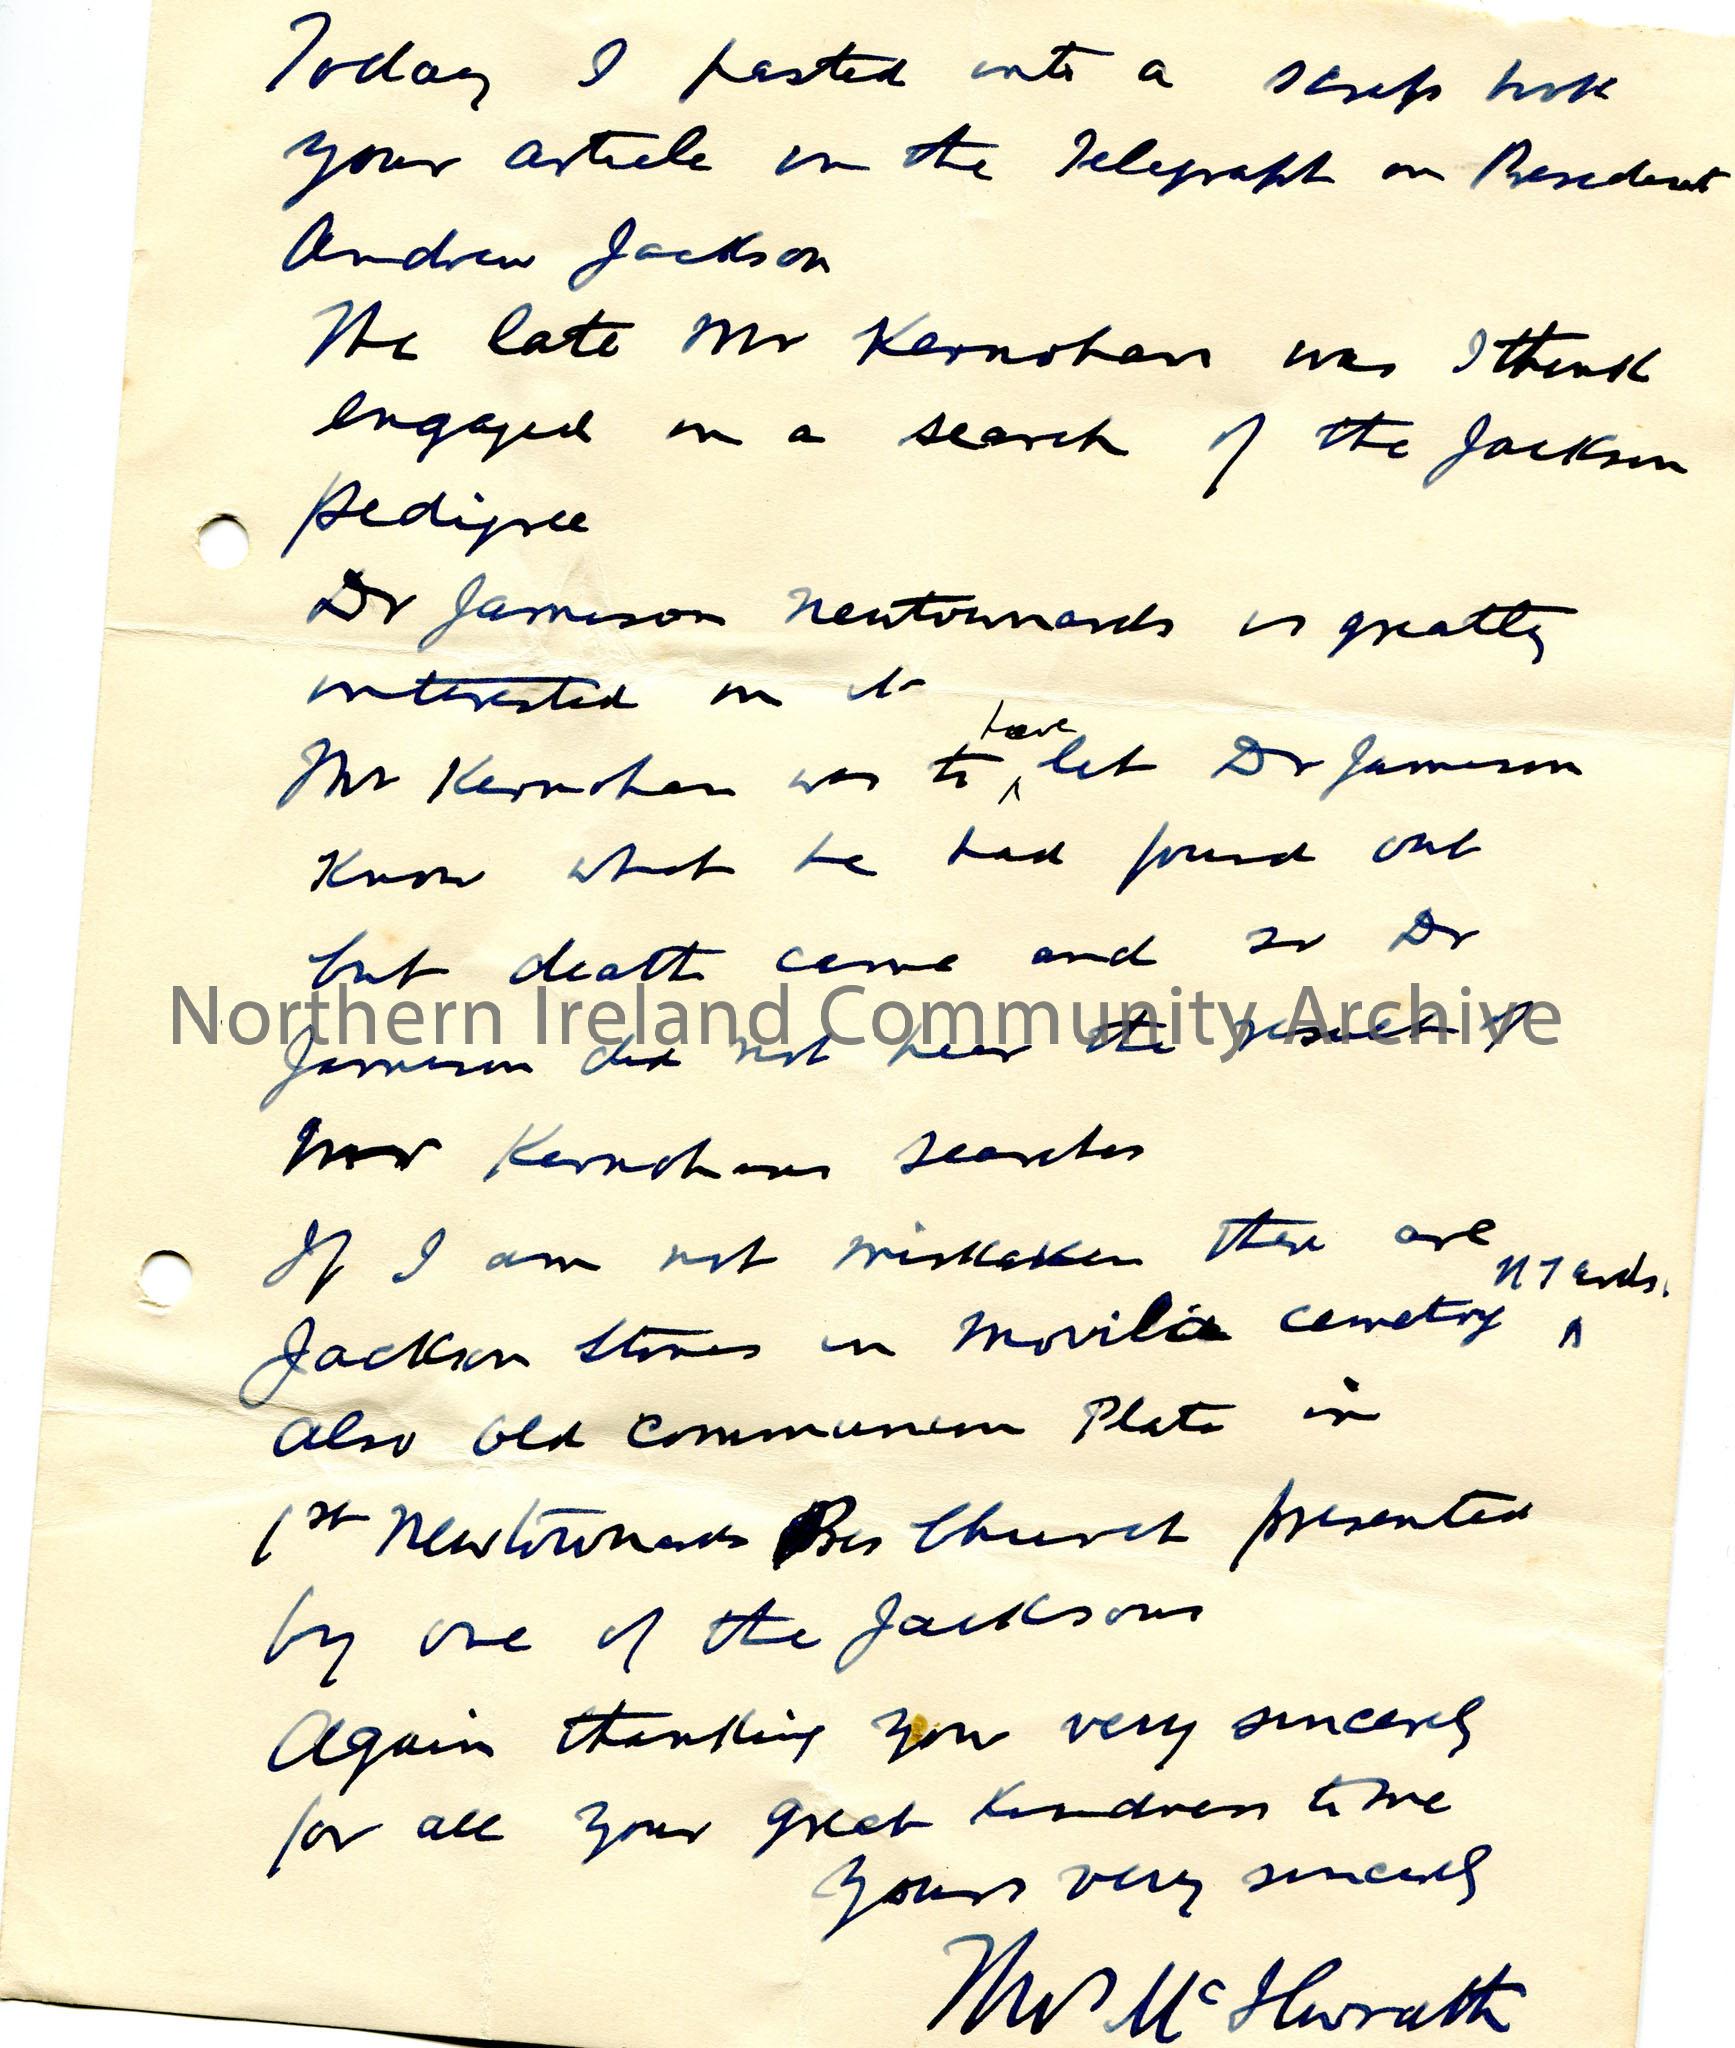 Today I pasted into a scrap book
your article in the Telegraph on President
Andrew Jackson
The late Mr Kernohan was I think
engaged in a search of the Jackson
pedigree
Dr Jameson Newtownards is greatly
interested in it
Mr Kernohan was to have let Dr Jameson
know what he had found out
but death came and so Dr
Northern Ireland Community Archive
Jameson did not hear the result of
Mr Kernohans searches
If I am not miskaken there are
Jackson stones in Movilla cemetry N T ards.
Also old communion Plate in
1st Newtownards Pres Church presented
by one of the Jacksons
Again thanking you very sincerely
for all your great kindness to me
Yours very sincerely
McIlwrath